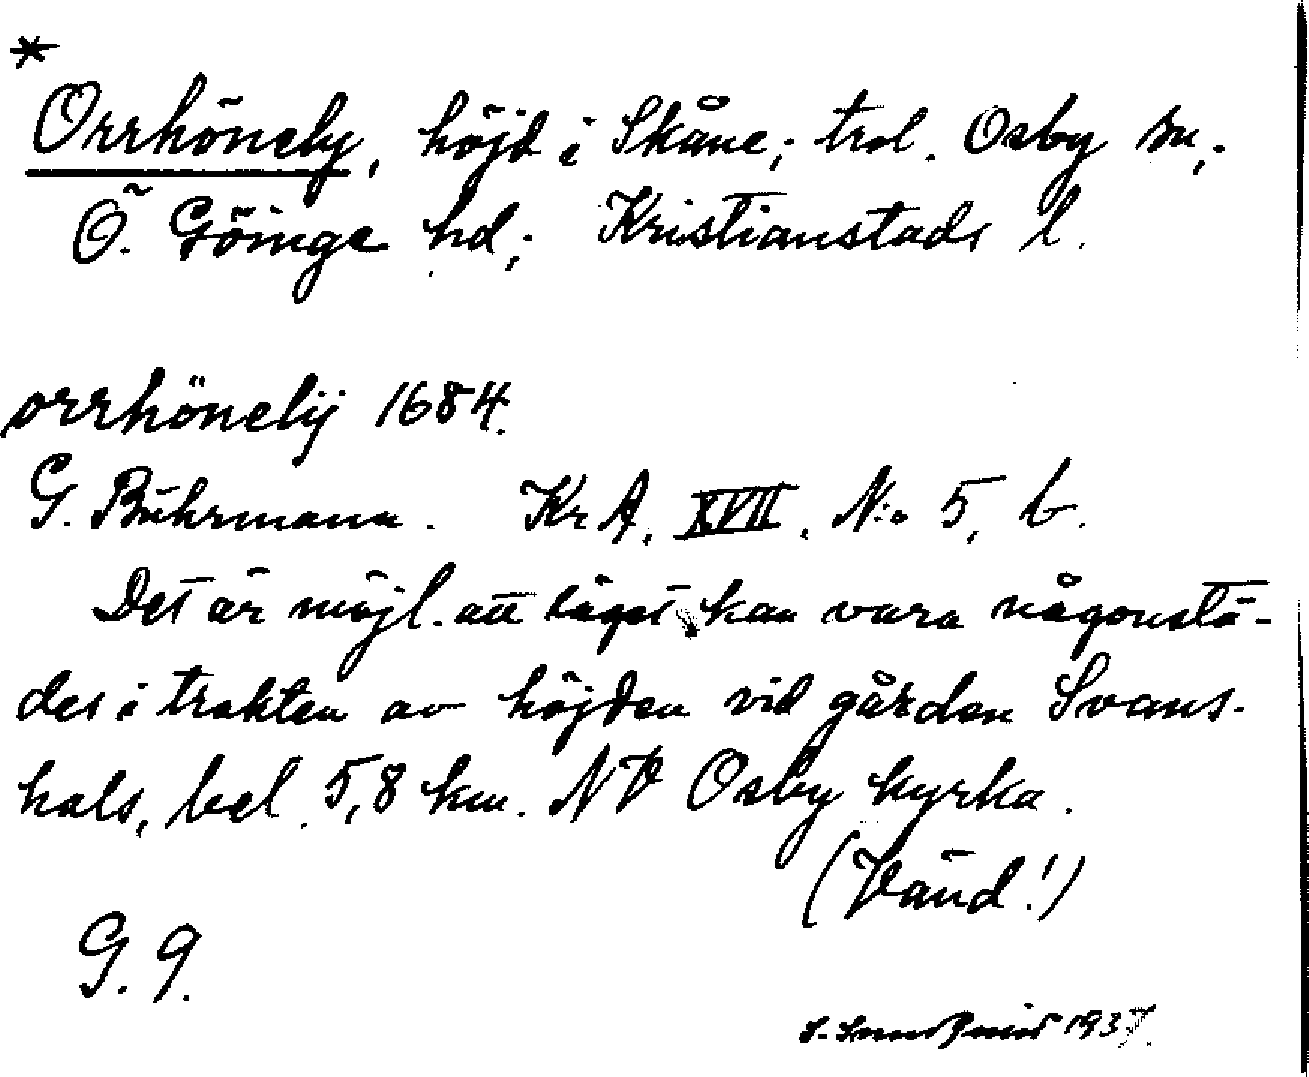 *
Orrhönely, höjd i Skåne; trol. Osby sn,
Ö. Göinge hd; Kristianstads l.
orrhönelÿ 1684.
G. Buhrmann. KrA. XVII. N:o 5, b.
Det är möjl. att läget kan vara någonstä-
des i trakten av höjden vid gården Svans-
hals, bel. 5,8 km. NV Osby kyrka.
(Vänd!)
G. 9.
1937.